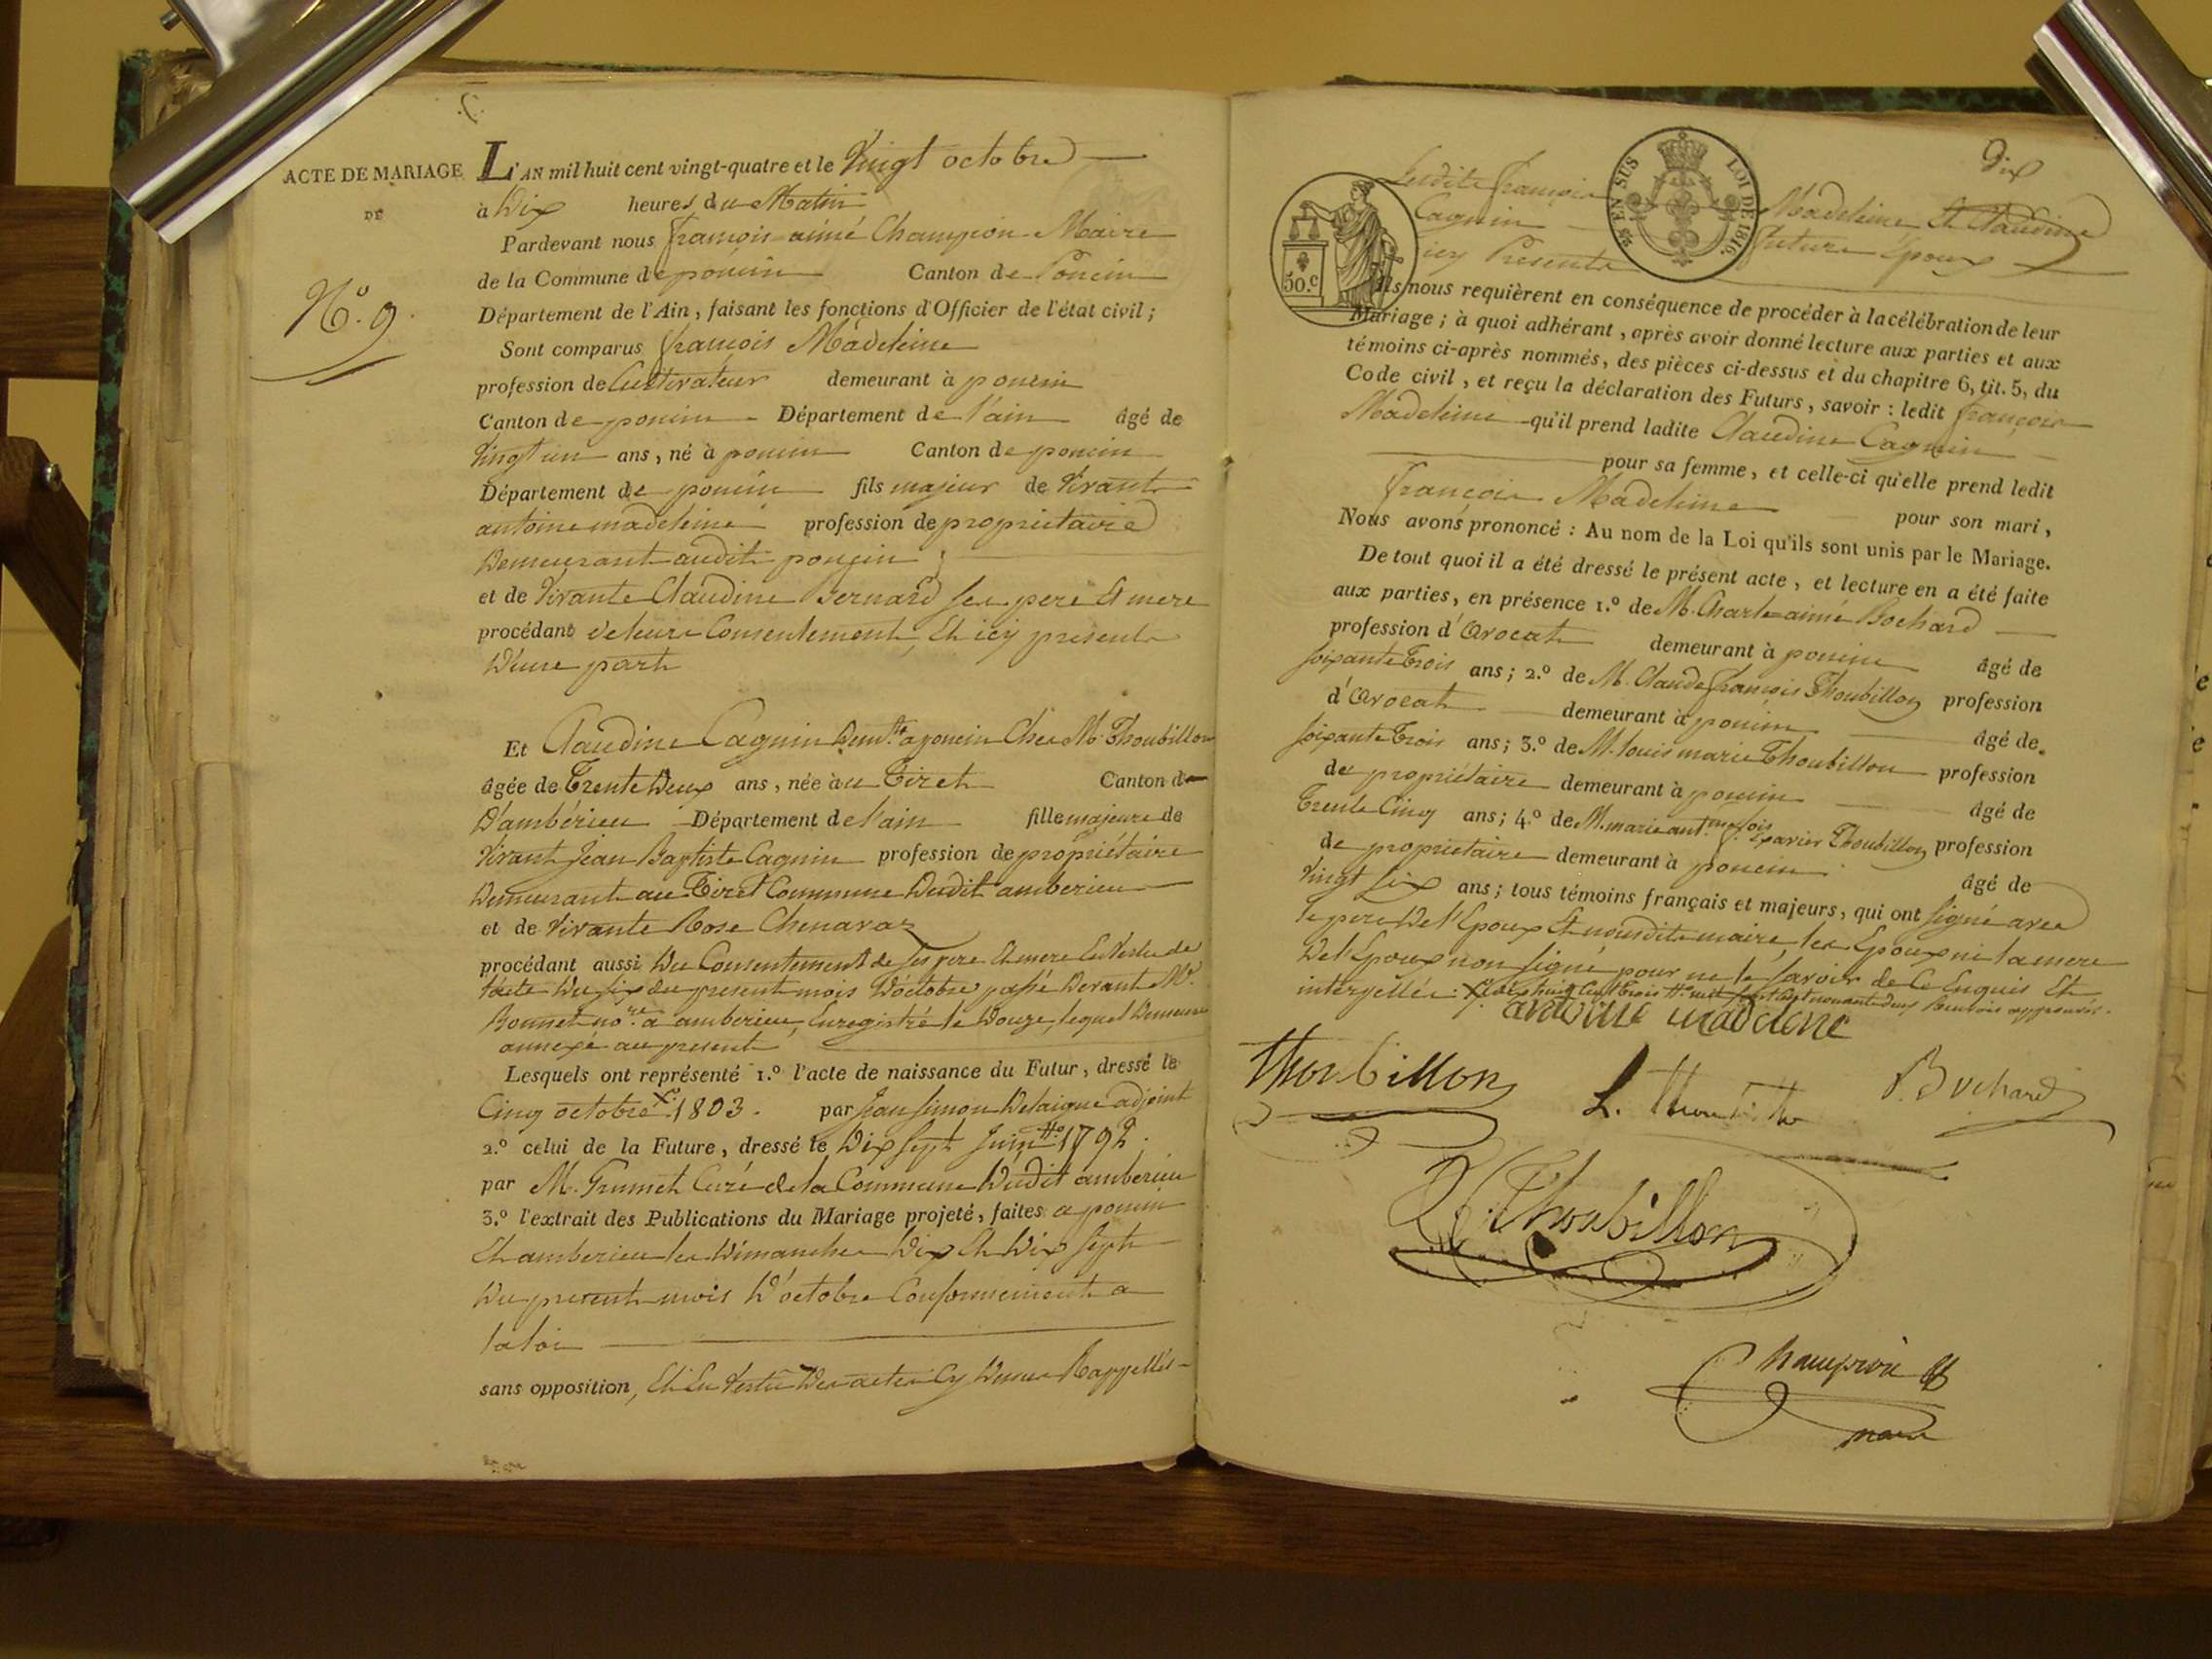 ACTE DE MARIAGE
DE
N.o 9.
L'AN mil huit cent vingt-quatre et le Vingt octobre
à Dix heures du Matin
Pardevant nous françois aimé Champion Maire
de la Commune de poncin Canton de Poncin
Département de l'Ain, faisant les fonctions d'Officier de l'état civil;
Sont comparus françois Madeleine
profession de Cultivateur demeurant à poncin
Canton de poncin Département de l'ain âgé de
Vingt un ans, né à poncin Canton de poncin
Département de poncin fils majeur de Vivant
antoine madeleine profession de proprietaire
Demeurant audit poncin;
et de Vivante Claudine Bernard ses pere et mere
procédant de leurs Consentement, Et icy presents
D'une part
Et Claudine Cagnin Demte a poncin Chez M. Thoubillon
âgée de Trente Deux ans, née au Tiret Canton de
D'ambérieu Département de l'ain fille majeure de
Vivant Jean Baptiste Cagnin profession de propriétaire
Demeurant au Tiret Commune Dudit amberieu
et de Vivante Rose Chenavaz
procédant aussi Du Consentement de ses pere et mere En Vertu de
l'acte Du six du present mois D'octobre passé Devant Me
Bonnet nore a amberieu, Enregistré le Douze, lequel Demeure
annexé au present
Lesquels ont représenté 1.o l'acte de naissance du Futur, dressé le
Cinq octobre 1803. par Jean Simon Delaigue adjoint
2.o celui de la Future, dressé le Dix sept Juin 1792.
par M. Grumet Curé de la Commune Dudit amberieu
3.o l'extrait des Publications du Mariage projeté, faites a poncin
Et amberieu les Dimanches Dix Et Dix sept
Du present mois D'octobre Conformement a
la loi
sans opposition, Et En Vertu Des actes Cy Dessus Rappellés
Dix
Lesdits françois Madeleine Et Claudine
Cagnin future Epoux
icy Presents
EN SUS LOI DE 1816.
50.c
Ils nous requièrent en conséquence de procéder à la célébration de leur
Mariage; à quoi adhérant, après avoir donné lecture aux parties et aux
témoins ci-après nommés, des pièces ci-dessus et du chapitre 6, tit. 5, du
Code civil, et reçu la déclaration des Futurs, savoir: ledit françois
Madeleine qu'il prend ladite Claudine Cagnin
pour sa femme, et celle-ci qu'elle prend ledit
françois Madeleine pour son mari,
Nous avons prononcé: Au nom de la Loi qu'ils sont unis par le Mariage.
De tout quoi il a été dressé le présent acte, et lecture en a été faite
aux parties, en présence 1.o de M. Charle aimé Bochard
profession d'avocat demeurant à poncin âgé de
soixante trois ans; 2.o de M. Claude françois Thoubillon profession
d'avocat demeurant à poncin âgé de
soixante trois ans; 3.o de M. louis marie Thoubillon profession
de propriétaire demeurant à poncin âgé de
Trente Cinq ans; 4.o de M. marie antne fois xavier Thoubillon profession
de proprietaire demeurant à poncin âgé de
Vingt six ans; tous témoins français et majeurs, qui ont signé avec
le pere De l'Epoux Et nousdit maire, les Epoux ni la mere
De l'Epoux non signé pour ne le savoir de Ce Enquis Et
interpellés. mil huit Cent trois mil sept Cent nonante deux Renvois approuvés.
antoine madelene
Thoubillon
L. Thoubillon
Bochard
Thoubillon
Champion
maire